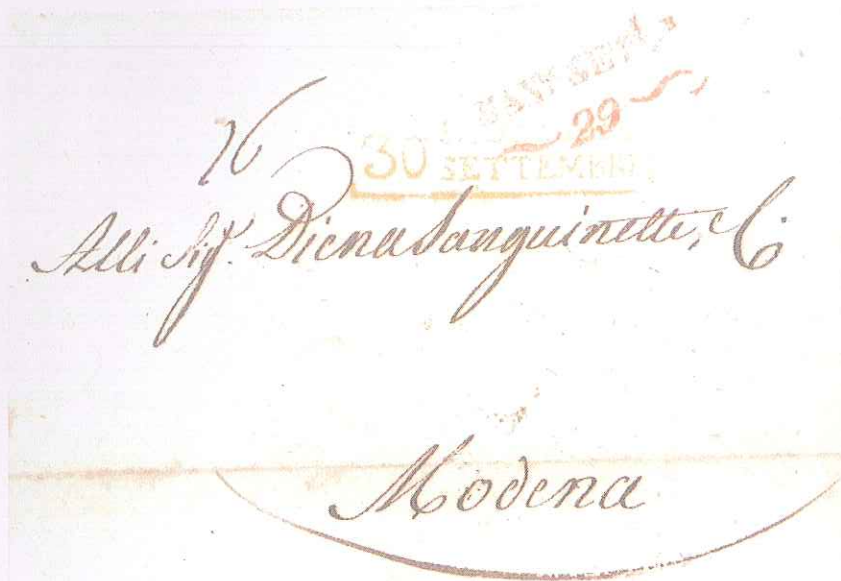 29
30 SETTEMBRE
26
Alli Sig.ri Diena Sanguinette, & C.
Modena